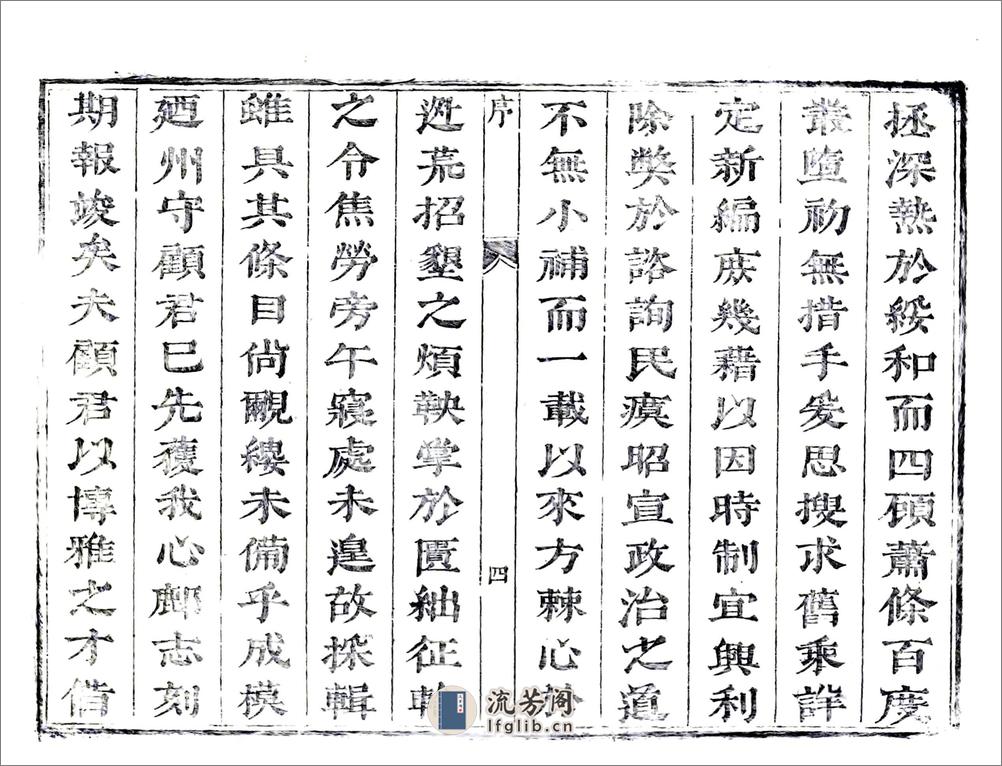 拯深熱於綏和而四頋蕭條百度
叢墮初無措手爰思搜求舊乘詳
定新編庻幾藉以因時制宜興利
除獘於諮詢民瘼昭宣政治之道
不無小補而一載以來方棘心於
序
四
迯荒招墾之煩鞅掌於匱紬征
之令焦勞旁午寢處未遑故採輯
雖具其條目尙覼縷未備乎成模
廼州守顧君已先獲我心鄜志刻
期報竣矣夫顧君以博雅之才偕
流芳阁
lfglib.cn